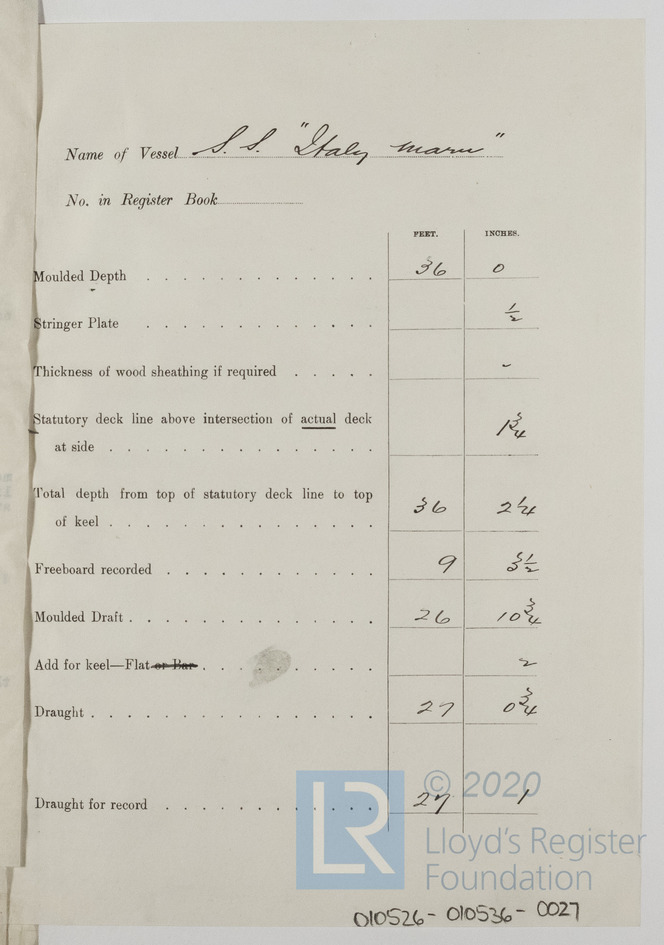 Name of Vessel S. S. "Italy Maru"
No. in Register Book
FEET. INCHES.
Moulded Depth 36 0
Stringer Plate ½
Thickness of wood sheathing if required -
Statutory deck line above intersection of actual deck
at side 1¾
Total depth from top of statutory deck line to top
of keel 36 2¼
Freeboard recorded 9 3½
Moulded Draft 26 10¾
Add for keel—Flat or Bar 2
Draught 27 0¾
Draught for record 27 1
LR © 2020
Lloyd's Register
Foundation
010526-010536-0027